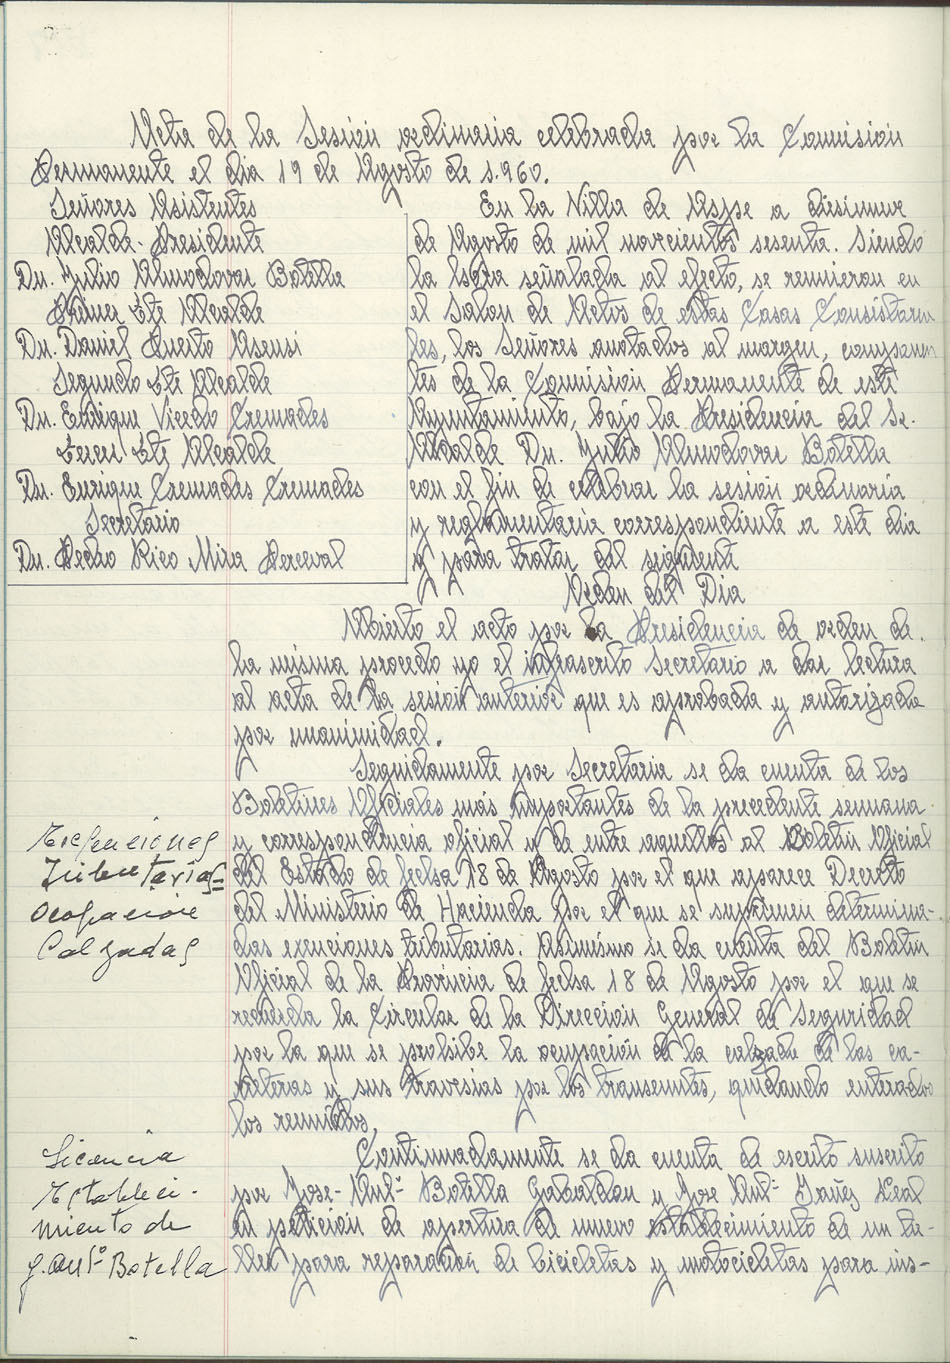 Acta de la Sesión ordinaria celebrada por la Comisión
Permanente el dia 19 de Agosto de 1.960.
Señores Asistentes
Alcalde-Presidente
Dn. Julio Almodovar Botella
Primer Tte Alcalde
Dn. Daniel Puerto Asensi
Segundo Tte Alcalde
Dn. Enrique Vicedo Cremades
Tercer Tte Alcalde
Dn. Enrique Cremades Cremades
Secretario
Dn. Pedro Rico Mira Perceval
En la Villa de Aspe a diesinueve
de Agosto de mil novecientos sesenta. Siendo
la hora señalada al efecto, se reunieron en
el Salon de Actos de estas Casas Consistoria
les, los Señores anotados al margen, componen
tes de la Comision Permanente de este
Ayuntamiento, bajo la Presidencia del Sr.
Alcalde Dn. Julio Almodovar Botella
con el fin de celebrar la sesión ordinaria
y reglamentaria correspondiente a este dia
y para tratar del siguiente
Orden del Dia
Abierto el acto por la Presidencia de orden de
la misma procedo yo el infrascrito Secretario a dar lectura
al acta de la sesión anterior que es aprobada y autorizada
por unanimidad.
Seguidamente por Secretaria se da cuenta de los
Boletines Oficiales más importantes de la precedente semana
Exepciones
Tributarias=
Ocupacion
Calzadas
y correspondencia oficial y de entre aquellos al Boletin Oficial
del Estado de fecha 18 de Agosto por el que aparece Decreto
del Ministerio de Hacienda por el que se suprimen determina-
das exenciones tributarias. Asimismo se da cuenta del Boletin
Oficial de la Provincia de fecha 18 de Agosto por el que se
la Circular de la Dirección General de Seguridad
por la que se prohibe la ocupación de la calzada de las ca-
rreteras y sus travesias por los transeuntes, quedando enterados
los reunidos.
Licencia
Estableci-
miento de
J. Antº Botella
Continuadamente se da cuenta de escrito suscrito
por Jose-Antº Botella Gabaldon y Jose Antº Yañez Leal
en peticion de apertura de nuevo establecimiento de un ta-
ller para reparación de bicicletas y motocicletas para ins-